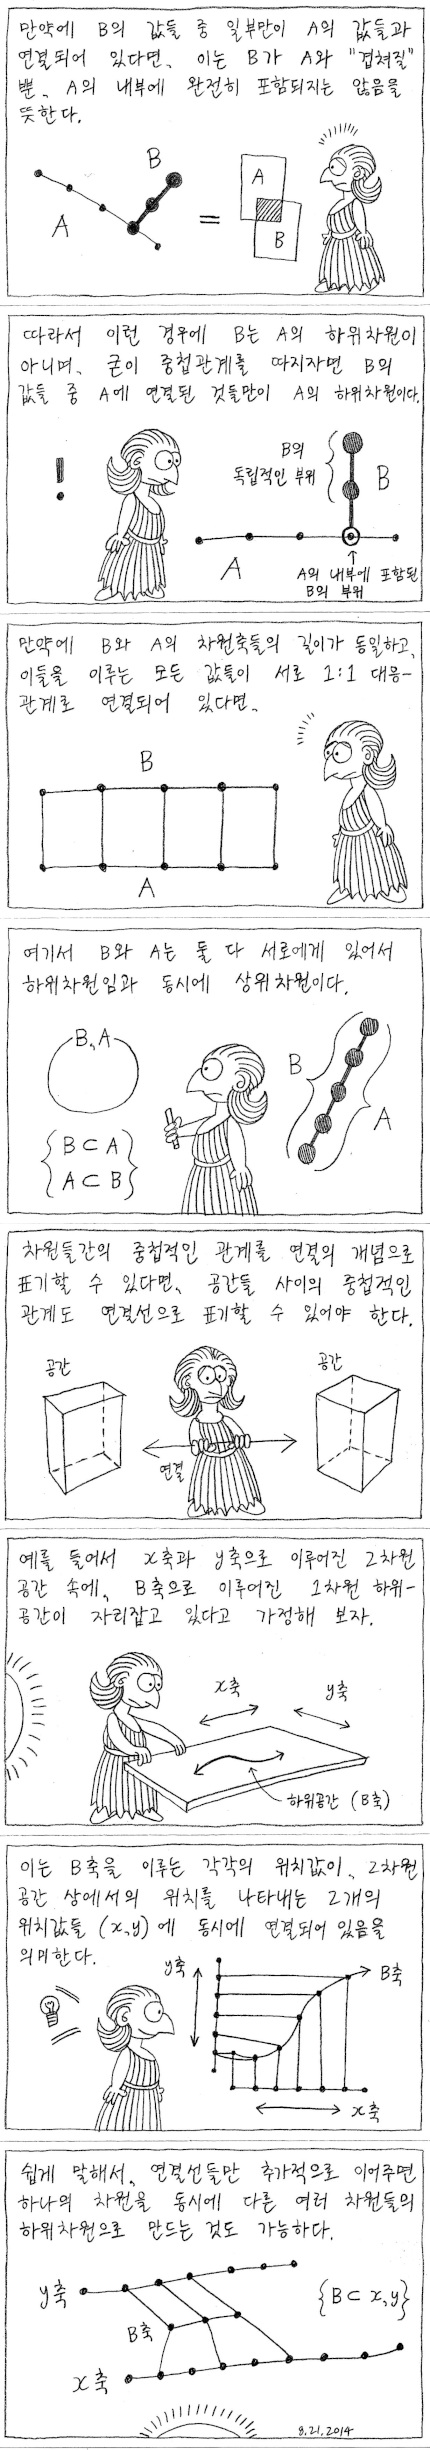 만약에 B의 값들 중 일부만이 A의 값들과
연결되어 있다면, 이는 B가 A와 "겹쳐질"
뿐, A의 내부에 완전히 포함되지는 않음을
뜻한다.
B
A
=
A
B
따라서 이런 경우에 B는 A의 하위차원이
아니며, 굳이 중첩관계를 따지자면 B의
값들 중 A에 연결된 것들만이 A의 하위차원이다.
!
B의
독립적인 부위
B
A
A의 내부에 포함된
B의 부위
만약에 B와 A의 차원축들의 길이가 동일하고,
이들을 이루는 모든 값들이 서로 1:1 대응-
관계로 연결되어 있다면,
B
A
여기서 B와 A는 둘 다 서로에게 있어서
하위차원임과 동시에 상위차원이다.
B, A
{B⊂A
A⊂B}
B
A
차원들간의 중첩적인 관계를 연결의 개념으로
표기할 수 있다면, 공간들 사이의 중첩적인
관계도 연결선으로 표기할 수 있어야 한다.
공간
공간
연결
예를 들어서 x축과 y축으로 이루어진 2차원
공간 속에, B축으로 이루어진 1차원 하위-
공간이 자리잡고 있다고 가정해 보자.
x축
y축
하위공간 (B축)
이는 B축을 이루는 각각의 위치값이, 2차원
공간 상에서의 위치를 나타내는 2개의
위치값들 (x,y)에 동시에 연결되어 있음을
의미한다.
y축
B축
x축
쉽게 말해서, 연결선들만 추가적으로 이어주면
하나의 차원을 동시에 다른 여러 차원들의
하위차원으로 만드는 것도 가능하다.
y축
{B⊂x,y}
B축
x축
8.21.2014